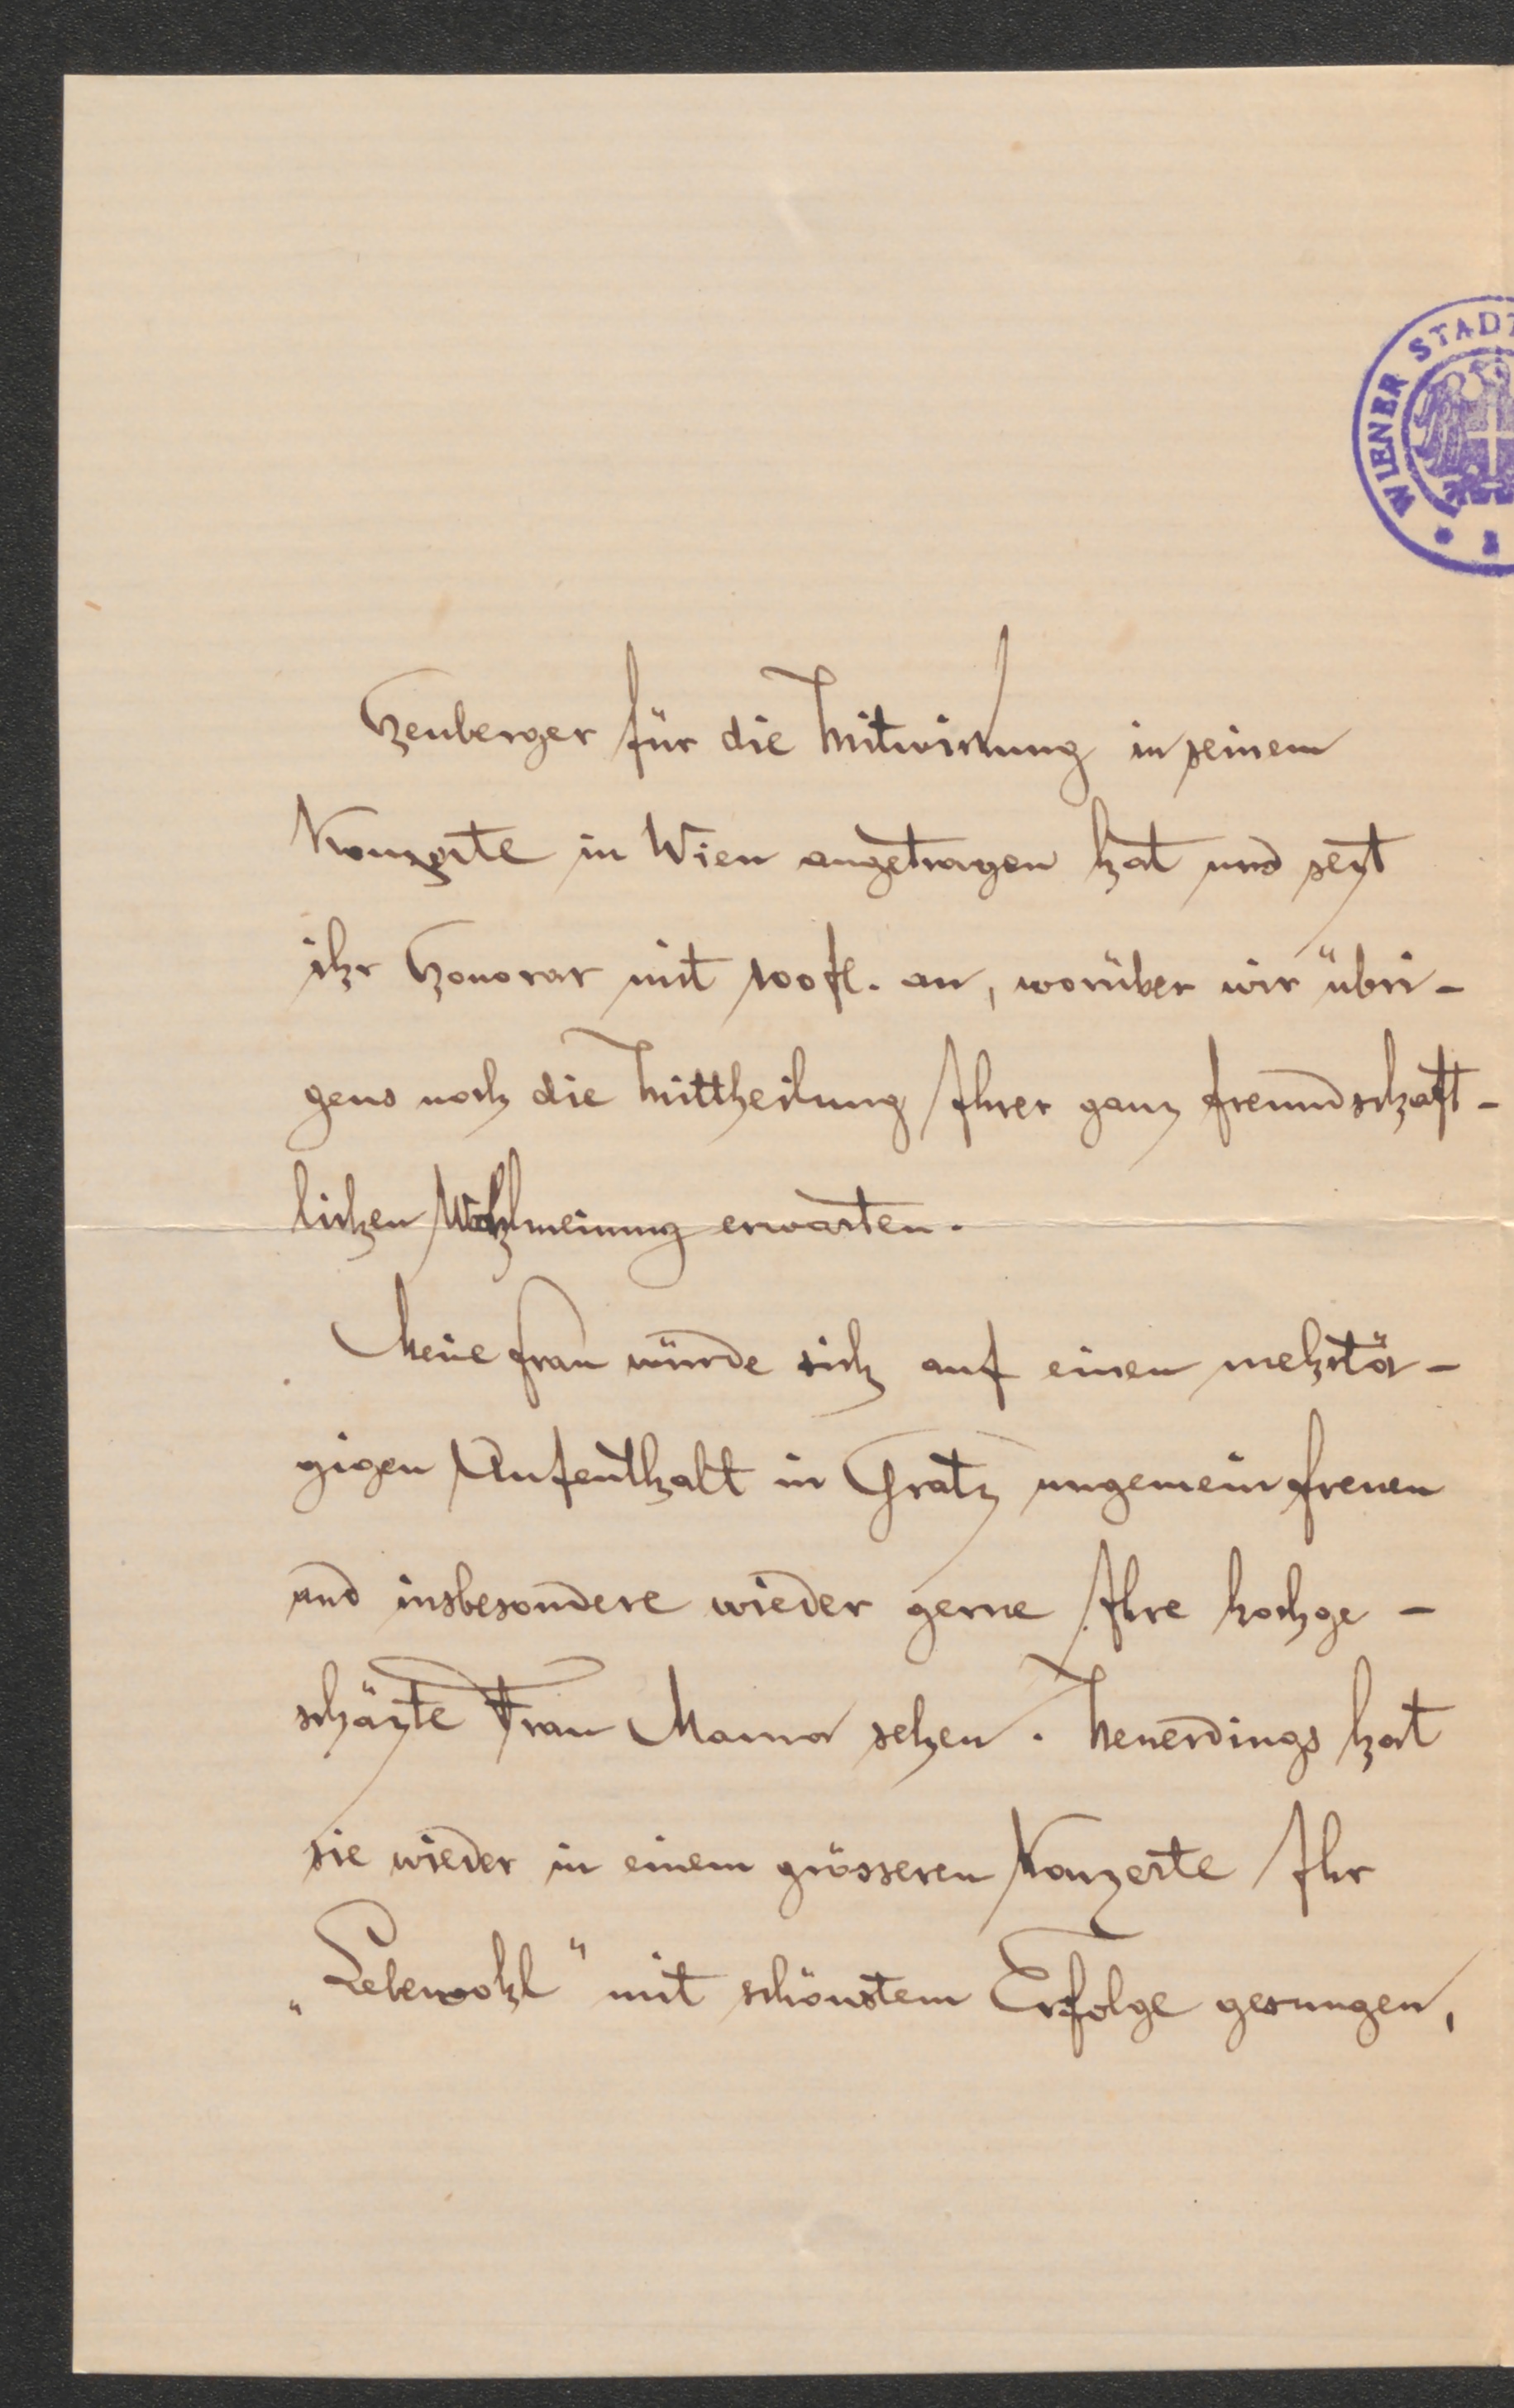 WIENER STADT
Heuberger für die Mitwirkung in seinem
Konzerte in Wien angetragen hat und sezt
ihr Honorar mit 100 fl. an, worüber wir übri-
gens noch die Mittheilung Ihrer ganz freundschaft-
lichen Wohlmeinung erwarten.
Meine Frau würde sich auf einen mehrtä-
gigen Aufenthalt in Gratz ungemein freuen
und insbesondere wieder gerne Ihre hochge-
schäzte Frau Mama sehen. Neuerdings hat
sie wieder in einem grösseren Konzerte Ihr
„Lebewohl" mit schönstem Erfolge gesungen,